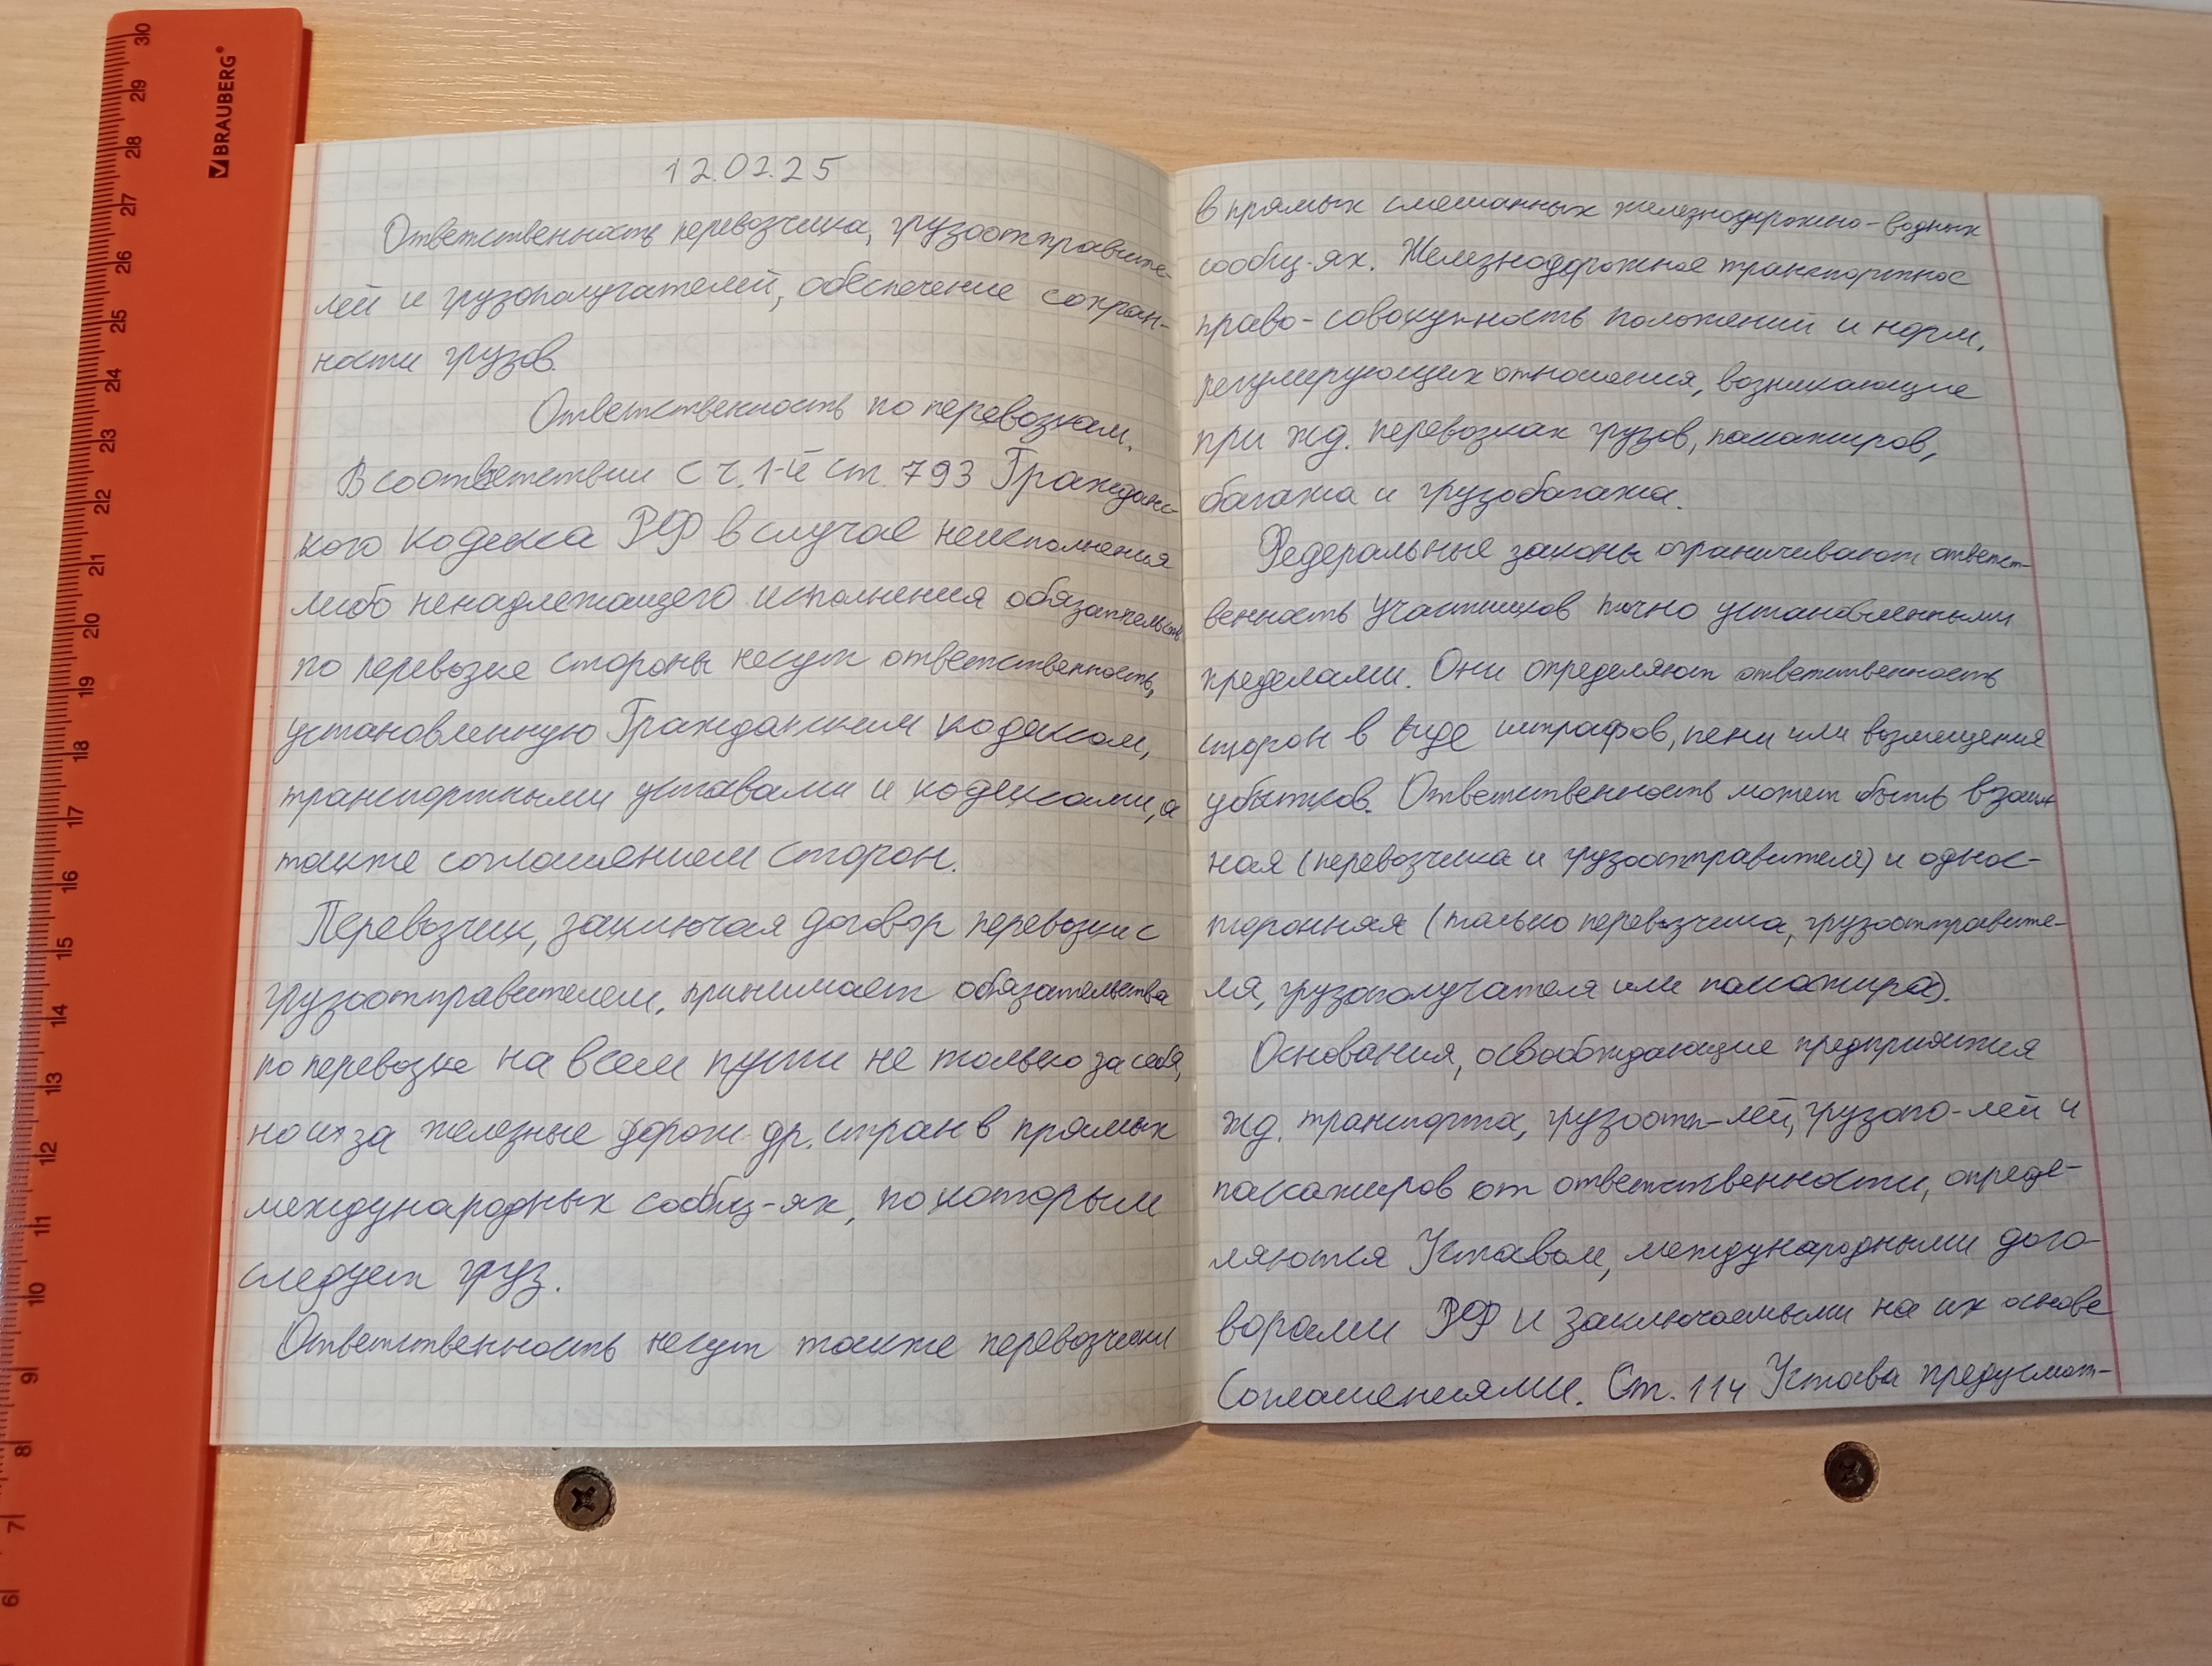 30
29
28
27
26
25
24
23
22
21
20
19
18
17
16
15
14
13
12
11
10
9
8
7
6
BRAUBERG®
12.02.25
Ответственность перевозчика, грузоотправите-
лей и грузополучателей, обеспечение сохран-
ности грузов.
Ответственность по перевозкам.
В соответствии с ч. 1-й ст. 793 Гражданс-
кого кодекса РФ в случае неисполнения
либо ненадлежащего исполнения обязательств
по перевозке стороны несут ответственность,
установленную Гражданским кодексом,
транспортными уставами и кодексами, а
также соглашением сторон.
Перевозчик, заключая договор перевозки с
грузоотправителем, принимает обязательства
по перевозке на всем пути не только за себя,
но и за железные дорог др. стран в прямых
международных сообщ-ях, по которым
следует груз.
Ответственность несут также перевозчики
в прямых смешанных железнодорожно-водных
сообщ-ях. Железнодорожное транспортное
право - совокупность положений и норм,
регулирующих отношения, возникающие
при жд. перевозках грузов, пассажиров,
багажа и грузобагажа.
Федеральные законы ограничивают ответст-
венность участников точно установленными
пределами. Они определяют ответственность
сторон в виде штрафов, пени или возмещения
убытков. Ответственность может быть взаим
ная (перевозчика и грузоотправителя) и однос-
торонняя (только перевозчика, грузоотправите-
ля, грузополучателя или пассажира).
Основания, освобождающие предприятия
жд. транспорта, грузоотп-лей, грузопо-лей и
пассажиров от ответственности, опреде-
ляются Уставом, международными дого-
ворами РФ и заключаемыми на их основе
Соглашениями. Ст. 114 Устава предусмот-